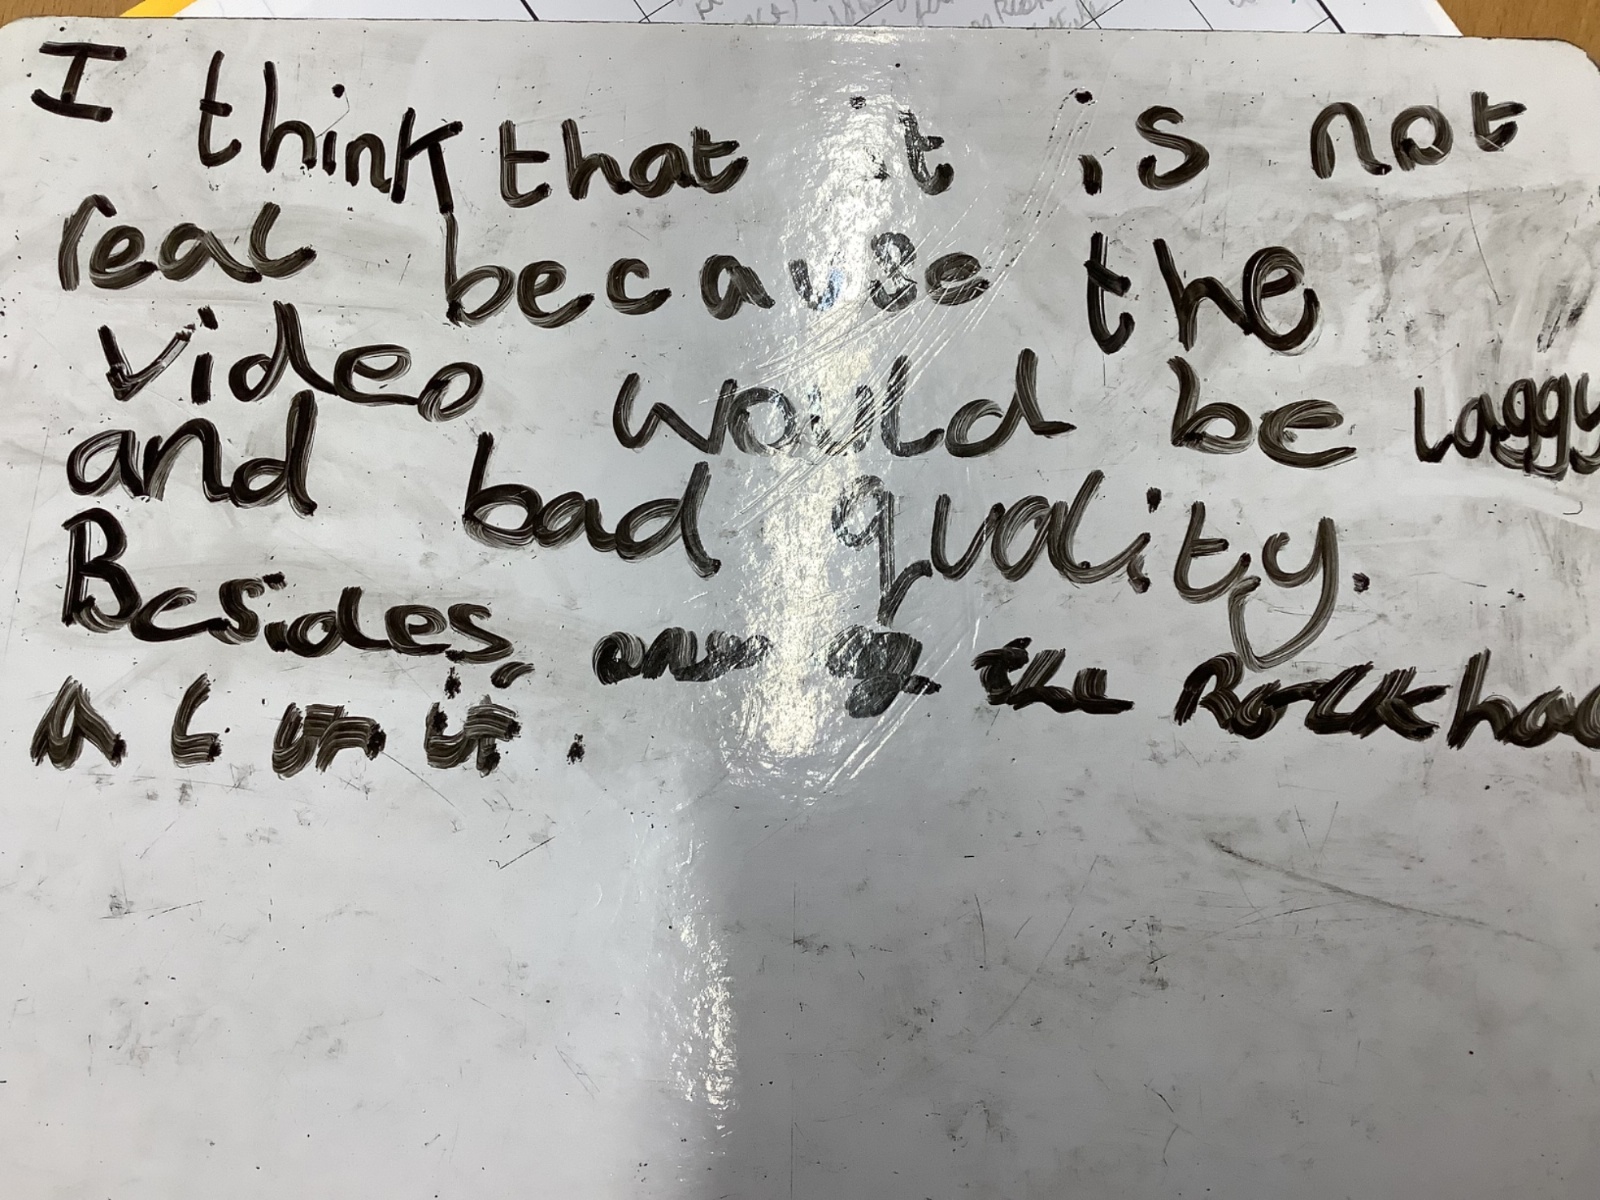 I think that it is not
real because the
video would be laggy
and bad quality.
Besides, the Rock had
a L on it.